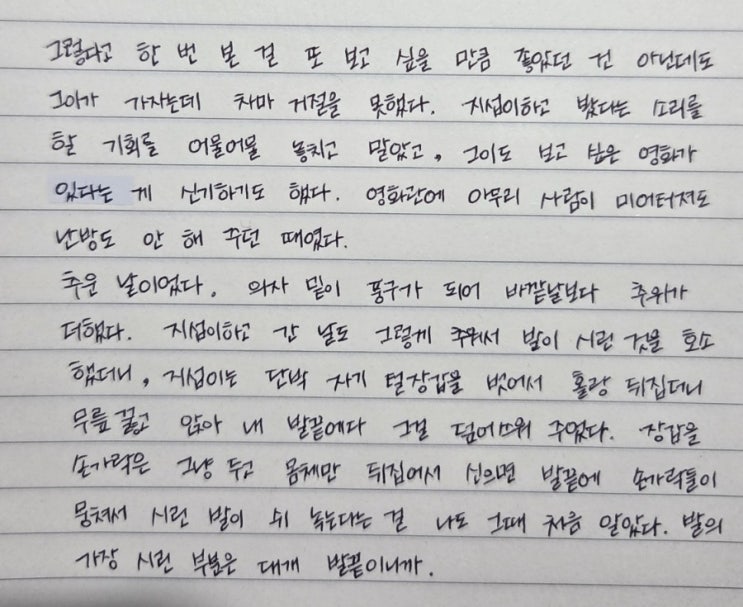 그렇다고 한 번 본 걸 또 보고 싶을 만큼 좋았던 건 아닌데도
그이가 가자는데 차마 거절을 못했다. 지섭이하고 봤다는 소리를
할 기회를 어물어물 놓치고 말았고, 그이도 보고 싶은 영화가
있다는 게 신기하기도 했다. 영화관에 아무리 사람이 미어터져도
난방도 안 해 주던 때였다.
추운 날이었다. 의자 밑이 풍구가 되어 바깥날보다 추위가
더했다. 지섭이하고 간 날도 그렇게 추워서 발이 시린 것을 호소
했더니, 지섭이는 단박 자기 털장갑을 벗어서 홀랑 뒤집더니
무릎 꿇고 앉아 내 발끝에다 그걸 덤어씌워 주었다. 장갑을
손가락은 그냥 두고 몸체만 뒤집어서 신으면 발끝에 손가락들이
뭉쳐서 시린 발이 쉬 녹는다는 걸 나도 그때 처음 알았다. 발의
가장 시린 부분은 대개 발끝이니까.